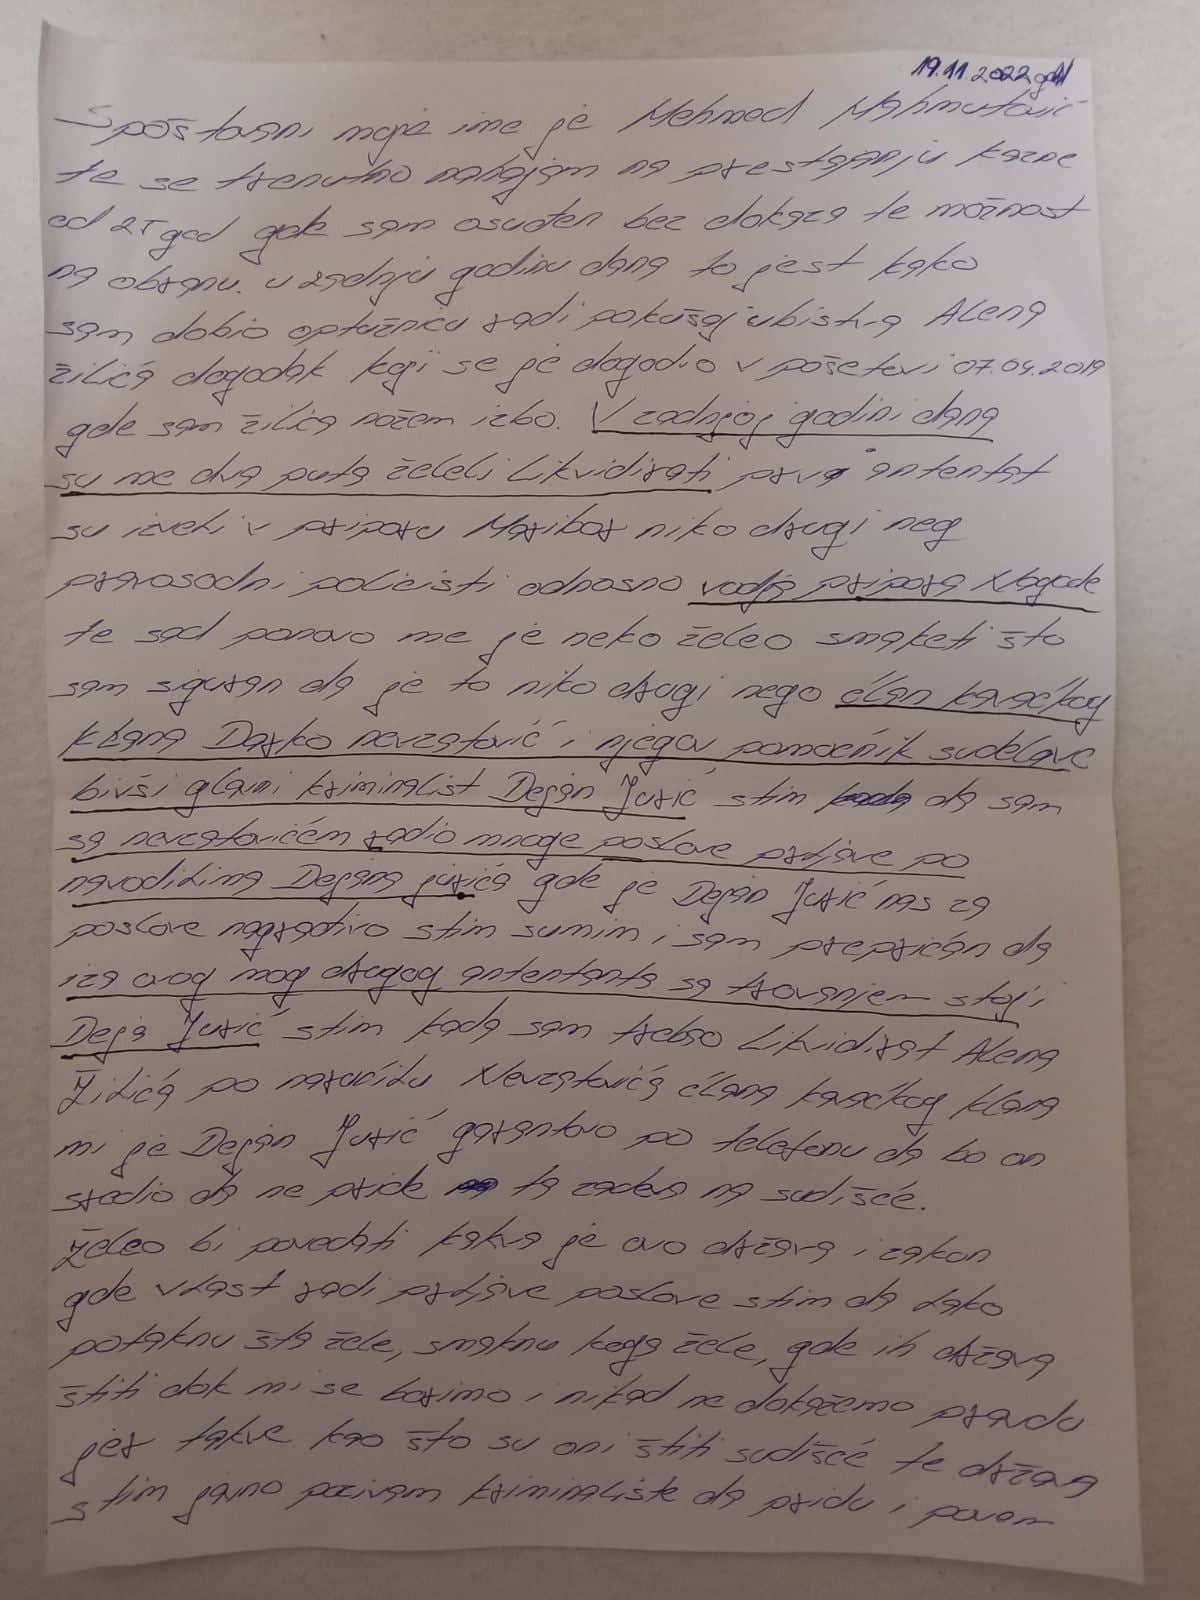 19.11.2022 god
Spoštovani moje ime je Mehmed Mahmutović
te se trenutno nahajam na prestajanju kazne
od 25 god gde sam osuđen bez dokaza te možnost
na obranu. u zadnju godinu dana to jest kako
sam dobio optužnicu radi pokušaj ubistva Alena
Žilića dogodak koji se je dogodio v pošetevi 07.04.2019
gde sam Žilića nožem izbo. V zadnjoj godini dana
su me dva puta želeli Likvidirati prva antentat
su izveli v priporu Maribor niko drugi neg
pravosodni policisti odnosno vodja pripora Nagode
te sad ponovo me je neko želeo smaketi što
sam siguran da je to niko drugi nego član kavačkog
klana Darko nevzatović i njegov pomoćnik sudelave
bivši glavni kriminalist Dejan Jurić stim da sam
sa nevzatovićem radio mnoge poslove prljave po
navodilima Dejana jurića gde je Dejan Jurić nas za
poslove nagradivo stim sumim i sam prepričan da
iza ovog mog drugog antentanta sa trovanjem stoji
Deja Jurić stim kada sam trebao Likvidirat Alena
Žilića po naročilu Nevzatovića člana kavačkog klana
mi je Dejan Jurić garantovo po telefonu da bo on
sredio da ne pride ta zadeva na sudišće.
Želeo bi povedati kakva je ovo država i zakon
gde vlast radi prljave poslove stim da lako
potaknu šta žele, smaknu koga žele, gde ih država
štiti dok mi se borimo i nikad ne dokažemo pravdu
jer takve kao što su oni štiti sudišće te država
stim javno pozivam kriminaliste da pridu i povem